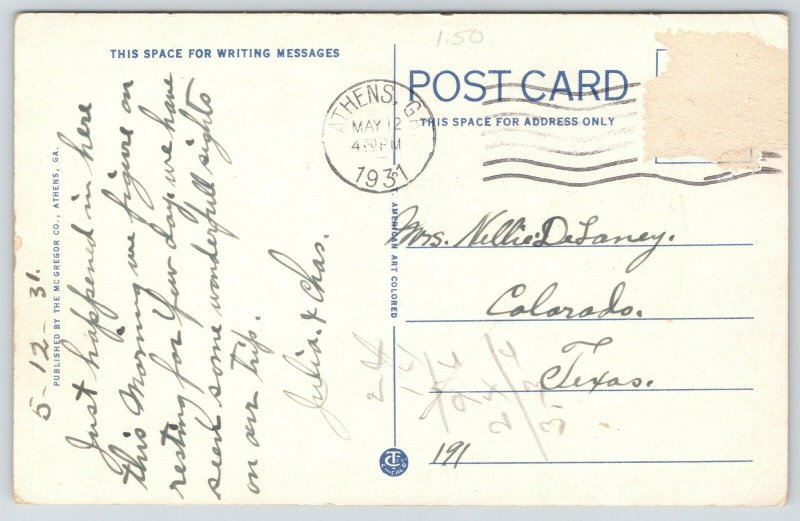 1.50
THIS SPACE FOR WRITING MESSAGES
POST CARD
THIS SPACE FOR ADDRESS ONLY
ATHENS, GA
MAY 12
4 PM
1931
5-12-31.
Just happened in here
this Morning we figure on
resting for few days we have
seen some wonderfull sights
on our trip.
Julia. & Chas.
Mrs. Nellie DeLaney.
Colorado.
Texas.
191
24
14
24
PUBLISHED BY THE MC GREGOR CO., ATHENS, GA.
AMERICAN ART COLORED
CHICAGO